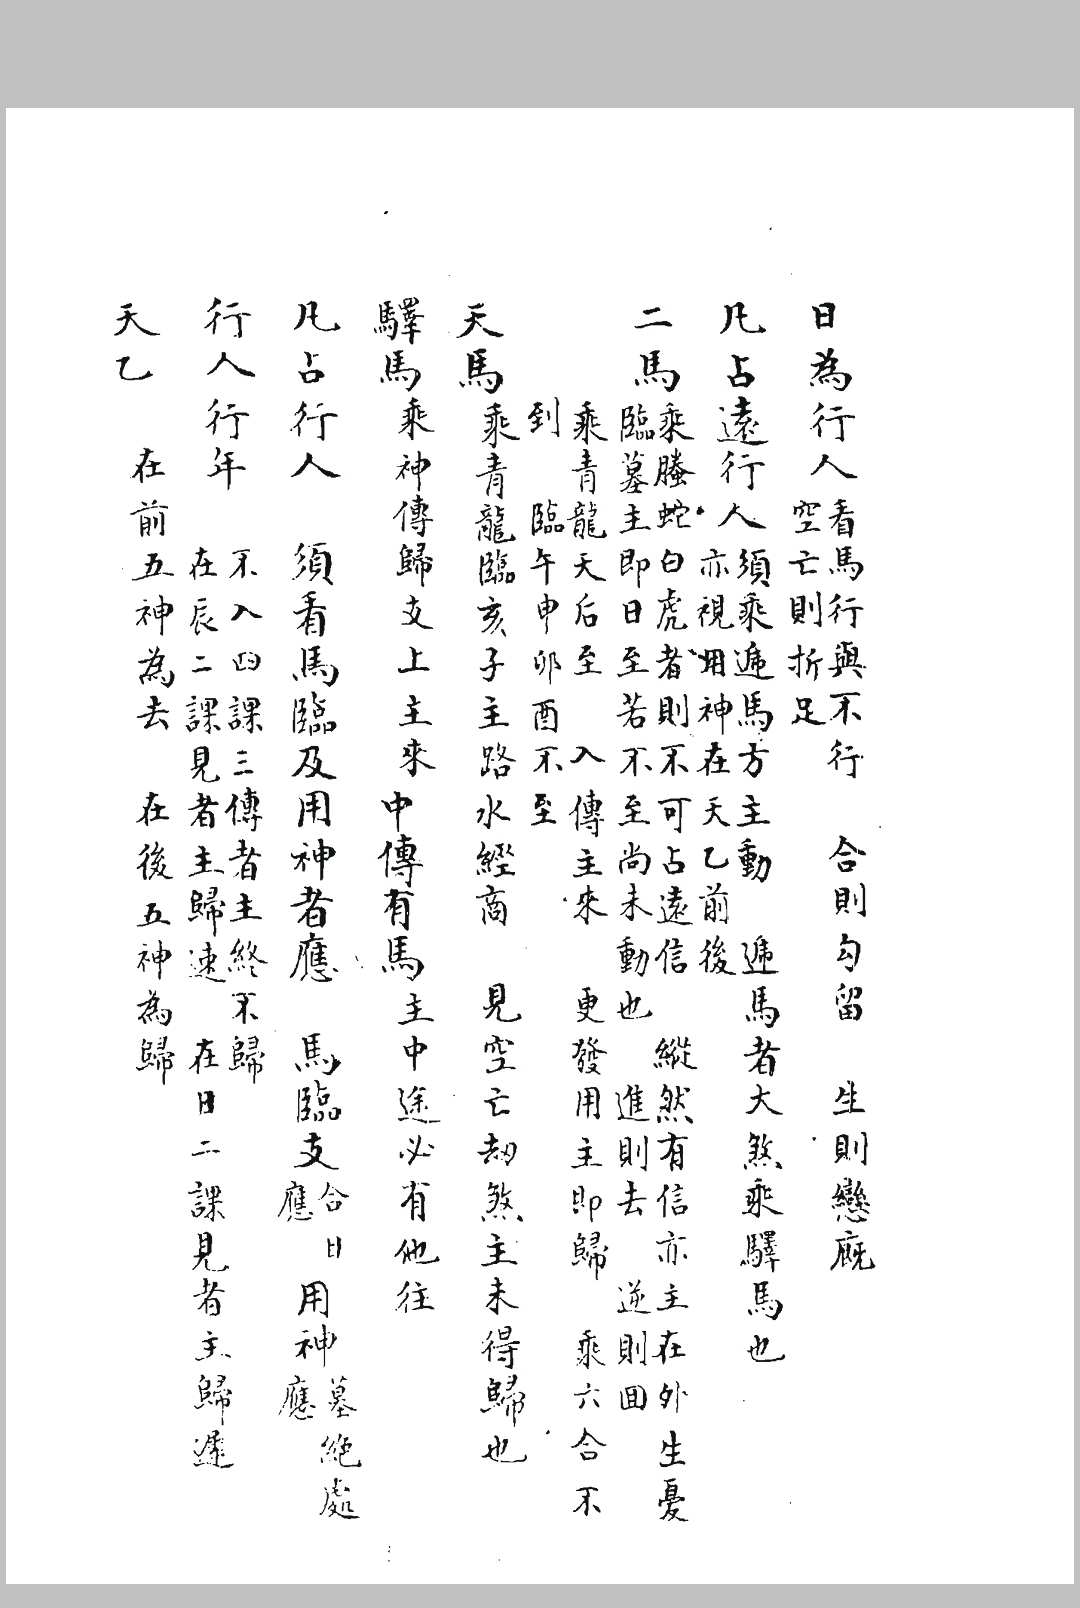 日為行人看馬行與不行　合則勾留　生則戀廐
空亡則折足
凡占遠行人須乘遞馬方主動　遞馬者大煞乘驛馬也
亦視用神在天乙前後
二馬乘螣蛇白虎者則不可占遠信　縱然有信亦主在外生憂
臨墓主即日至若不至尚未動也　進則去　逆則回
乘青龍天后至　入傳主來　更發用主即歸　乘六合不
到　臨午申卯酉不至
天馬乘青龍臨亥子主路水經商　見空亡劫煞主未得歸也
驛馬乘神傳歸支上主來　中傳有馬主中途必有他往
凡占行人　須看馬臨及用神者應　馬臨支合日應　用神墓絕處應
行人行年　不入四課三傳者主終不歸
在辰二課見者主歸速　在日二課見者主歸遲
天乙　在前五神為去　在後五神為歸